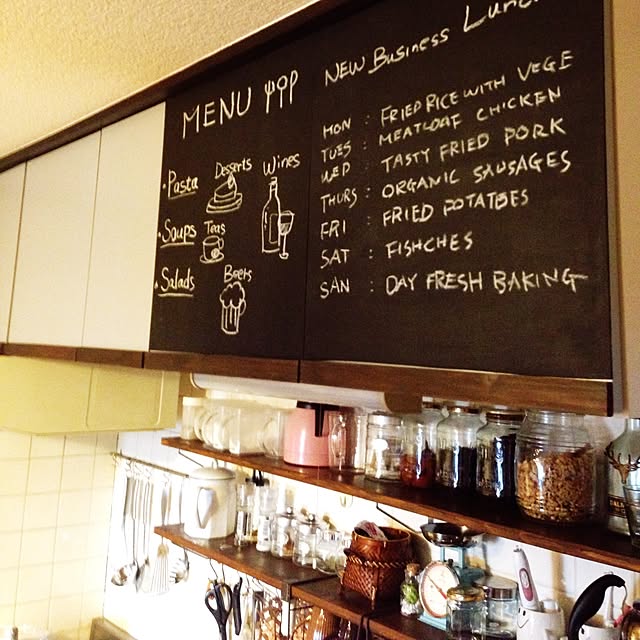 MENU
Pasta
Desserts
Wines
Soups
Teas
Salads
Beers
NEW BUSINESS LUNCH
MON : FRIED RICE WITH VEGE
TUES : MEATLOAF CHICKEN
WED : TASTY FRIED PORK
THURS : ORGANIC SAUSAGES
FRI : FRIED POTATOES
SAT : FISHCHES
SAN : DAY FRESH BAKING